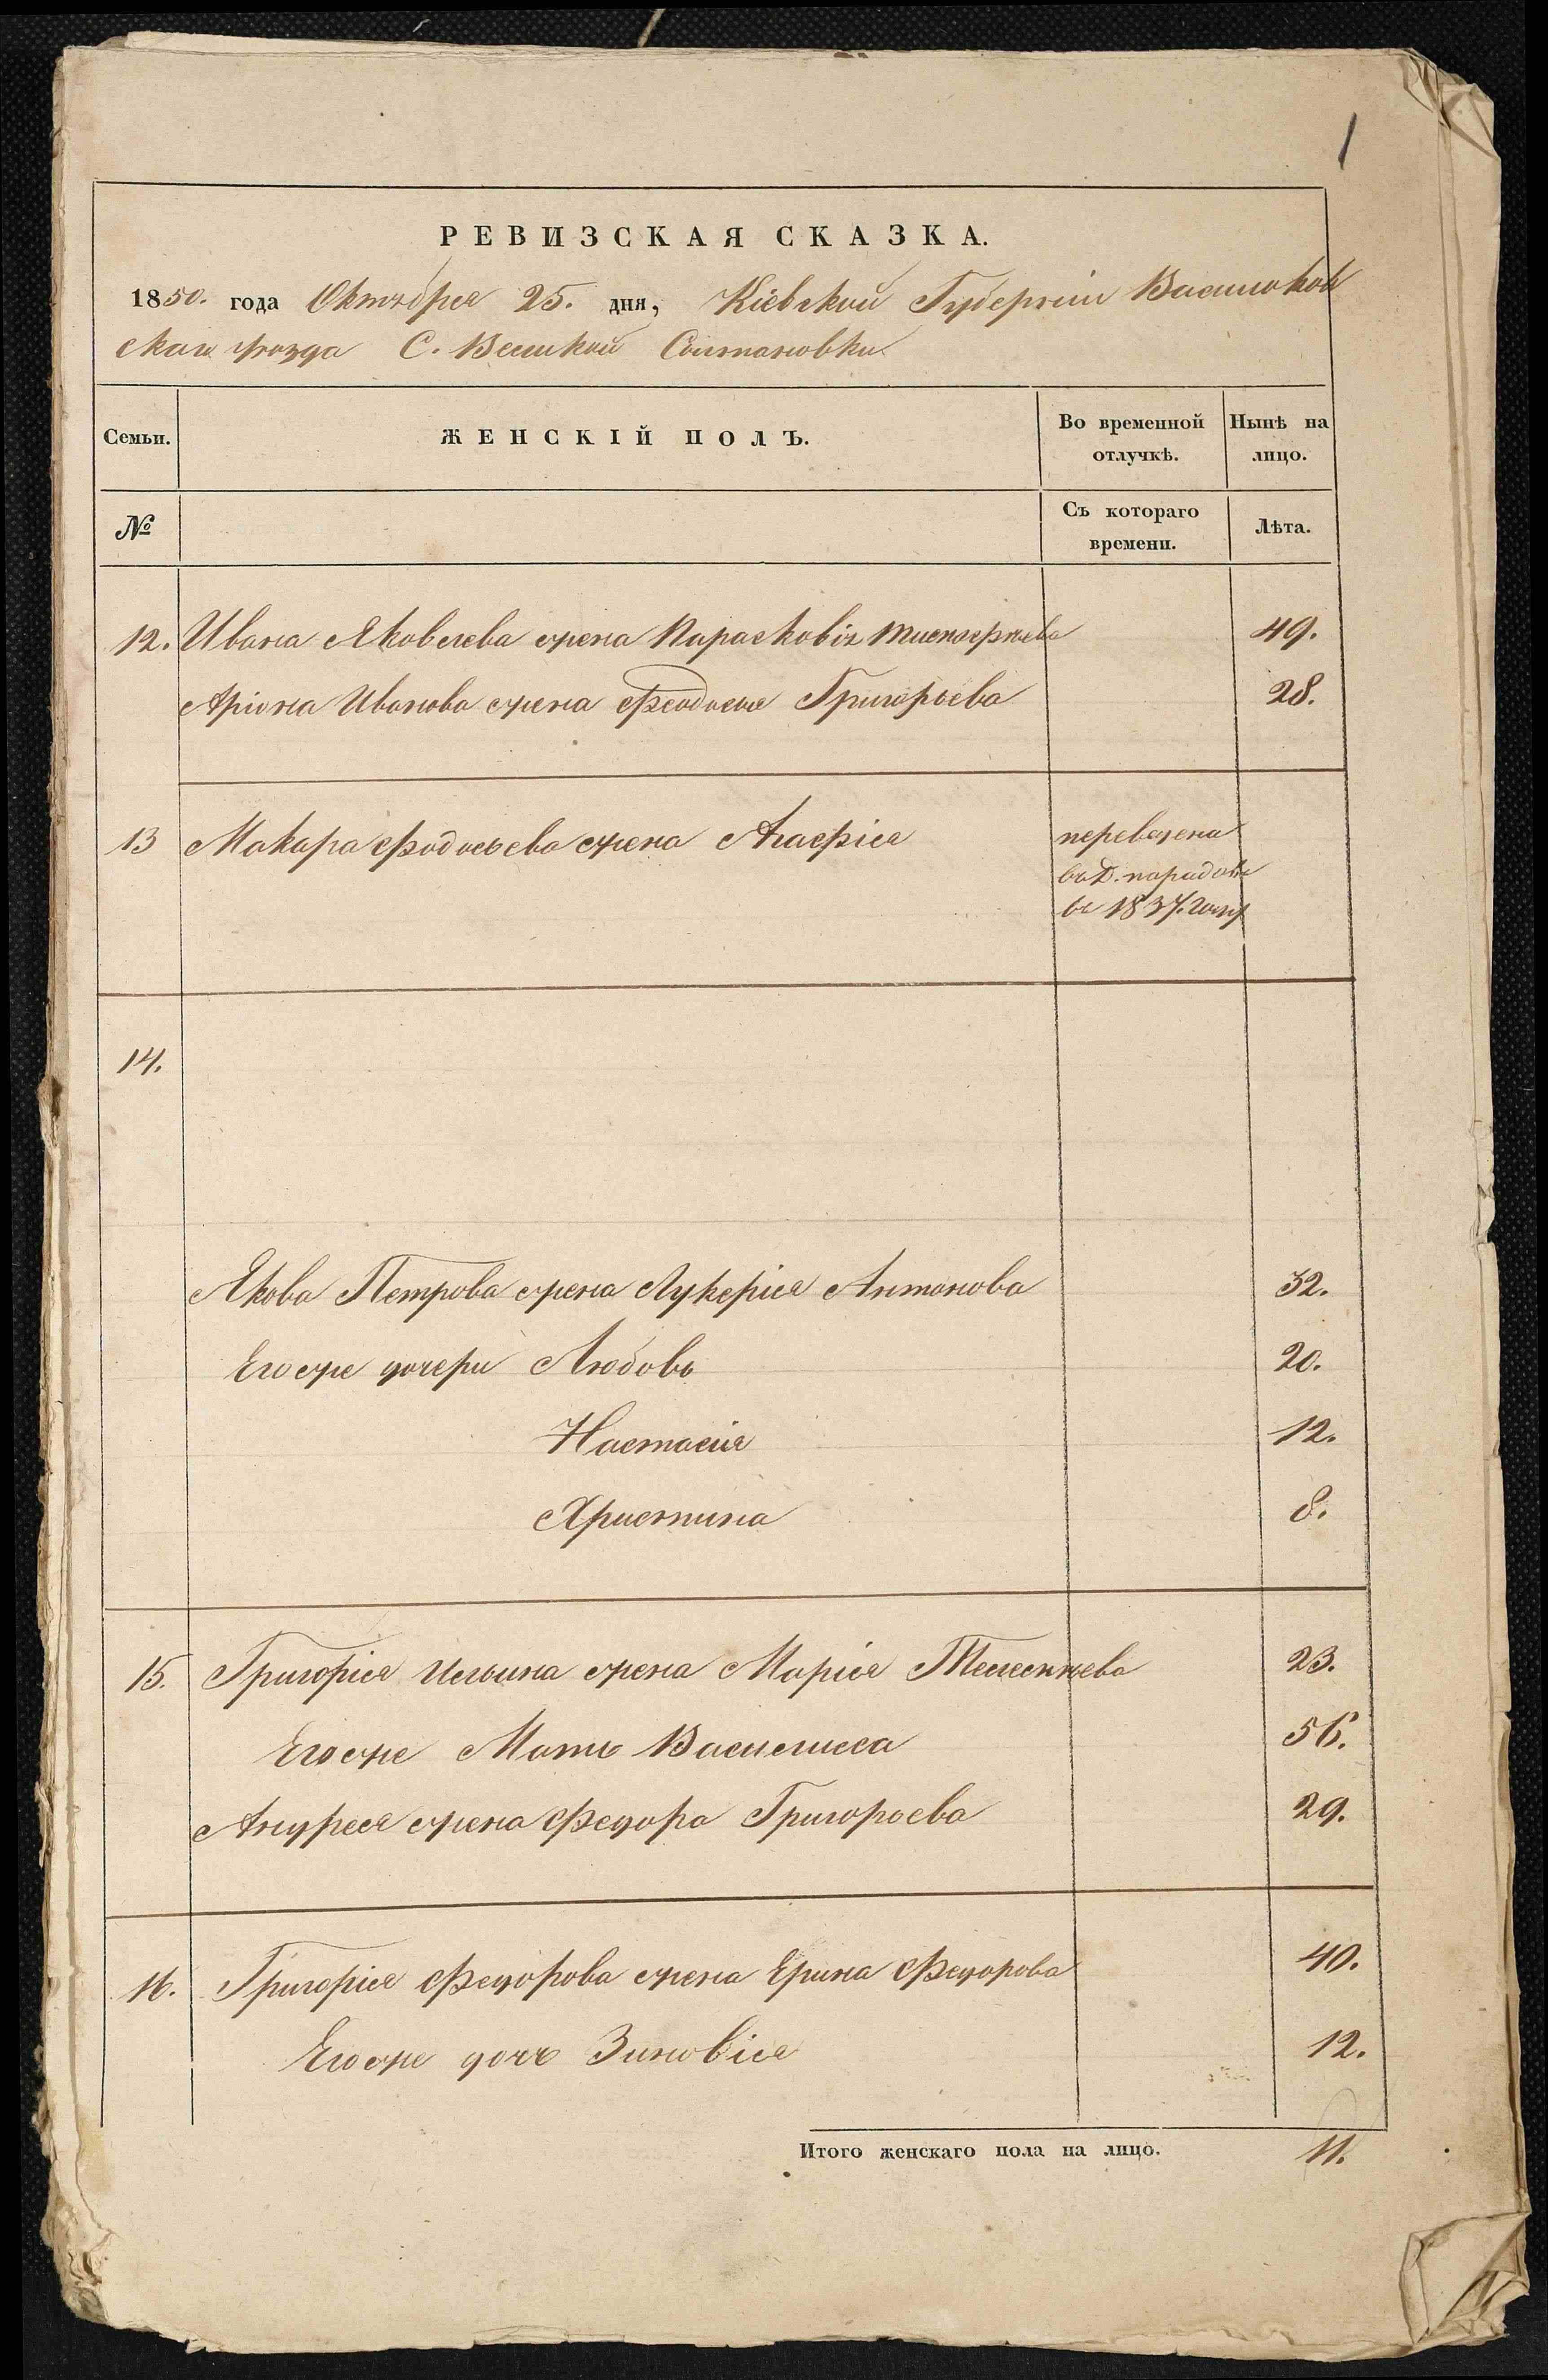 1
РЕВИЗСКАЯ СКАЗКА.
1850. года Октября 25. дня, Кіевской Губерніи Васильков
скаго уѣзда С. Великой Солтановки
Семьи. ЖЕНСКІЙ ПОЛЪ. Во временной отлучкѣ. Нынѣ на лицо.
№ Съ котораго времени. Лѣта.
12. Ивана Яковлева жена Парасковія 49.
Аріона Иванова жена Феодосія Григорьева 28.
13 Макара Федосьева жена Агафія переведена
въ Д.
въ 1837. году
14.
Якова Петрова жена Лукерія Антонова 32.
Его же дочери Любовь 20.
Настасія 12.
Христина 8.
15. Григорія Ильина жена Марія 23.
Его же Мать Василиса 56.
Андрея жена Федора Григорьева 29.
16. Григорія Федорова жена Ерина Федорова 40.
Его же дочь Зиновія 12.
Итого женскаго пола на лицо. 11.